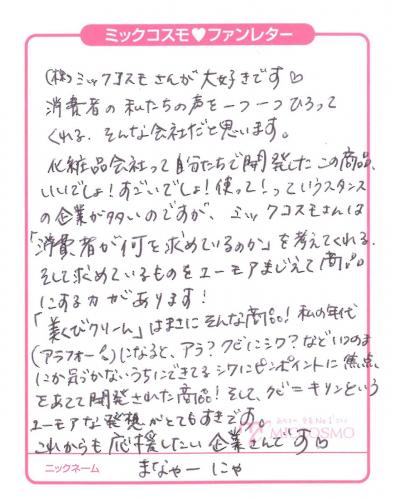 ミックコスモ♥ファンレター
(株)ミックコスモさんが大好きです♡
消費者の私たちの声を一つ一つひろって
くれる、そんな会社だと思います。
化粧品会社って自分たちで開発したこの商品、
いいでしょ!すごいでしょ!使って!っていうスタンス
の企業が多いのですが、ミックコスモさんは
「消費者が何を求めているのか」を考えてくれる、
そして求めているものをユーモアまじえて商品
にする力があります!
「美くびクリーム」はまさにそんな商品!私の年代
(アラフォー)になると、アラ?クビにシワ?などいつのま
にか気づかないうちにできてるシワにピンポイントに焦点
をあてて開発された商品!そして、クビ=キリンという
ユーモアな発想がとてもすきです。
これからも応援したい企業さんです♡
MICCOSMO
ニックネーム
まなやーにゃ